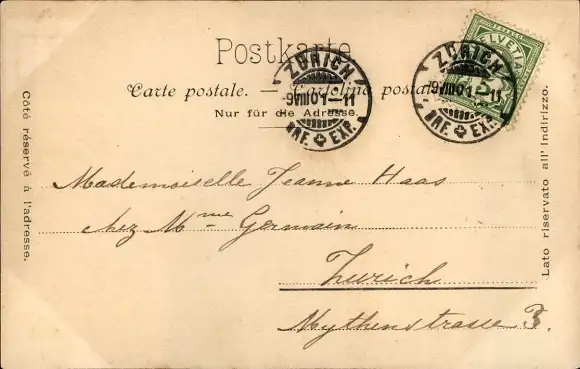 Postkarte
Carte postale. — Cartolina postale.
Nur für die Adresse.
Côté réservé à l'adresse.
Lato riservato all' Indirizzo.
HELVETIA
ZÜRICH
9VIII01-11
BRF. EXP.
ZÜRICH
9VIII01-11
BRF. EXP.
Mademoiselle Jeanne Haas
chez Mme Germain
Zurich
Mythenstrasse 3.